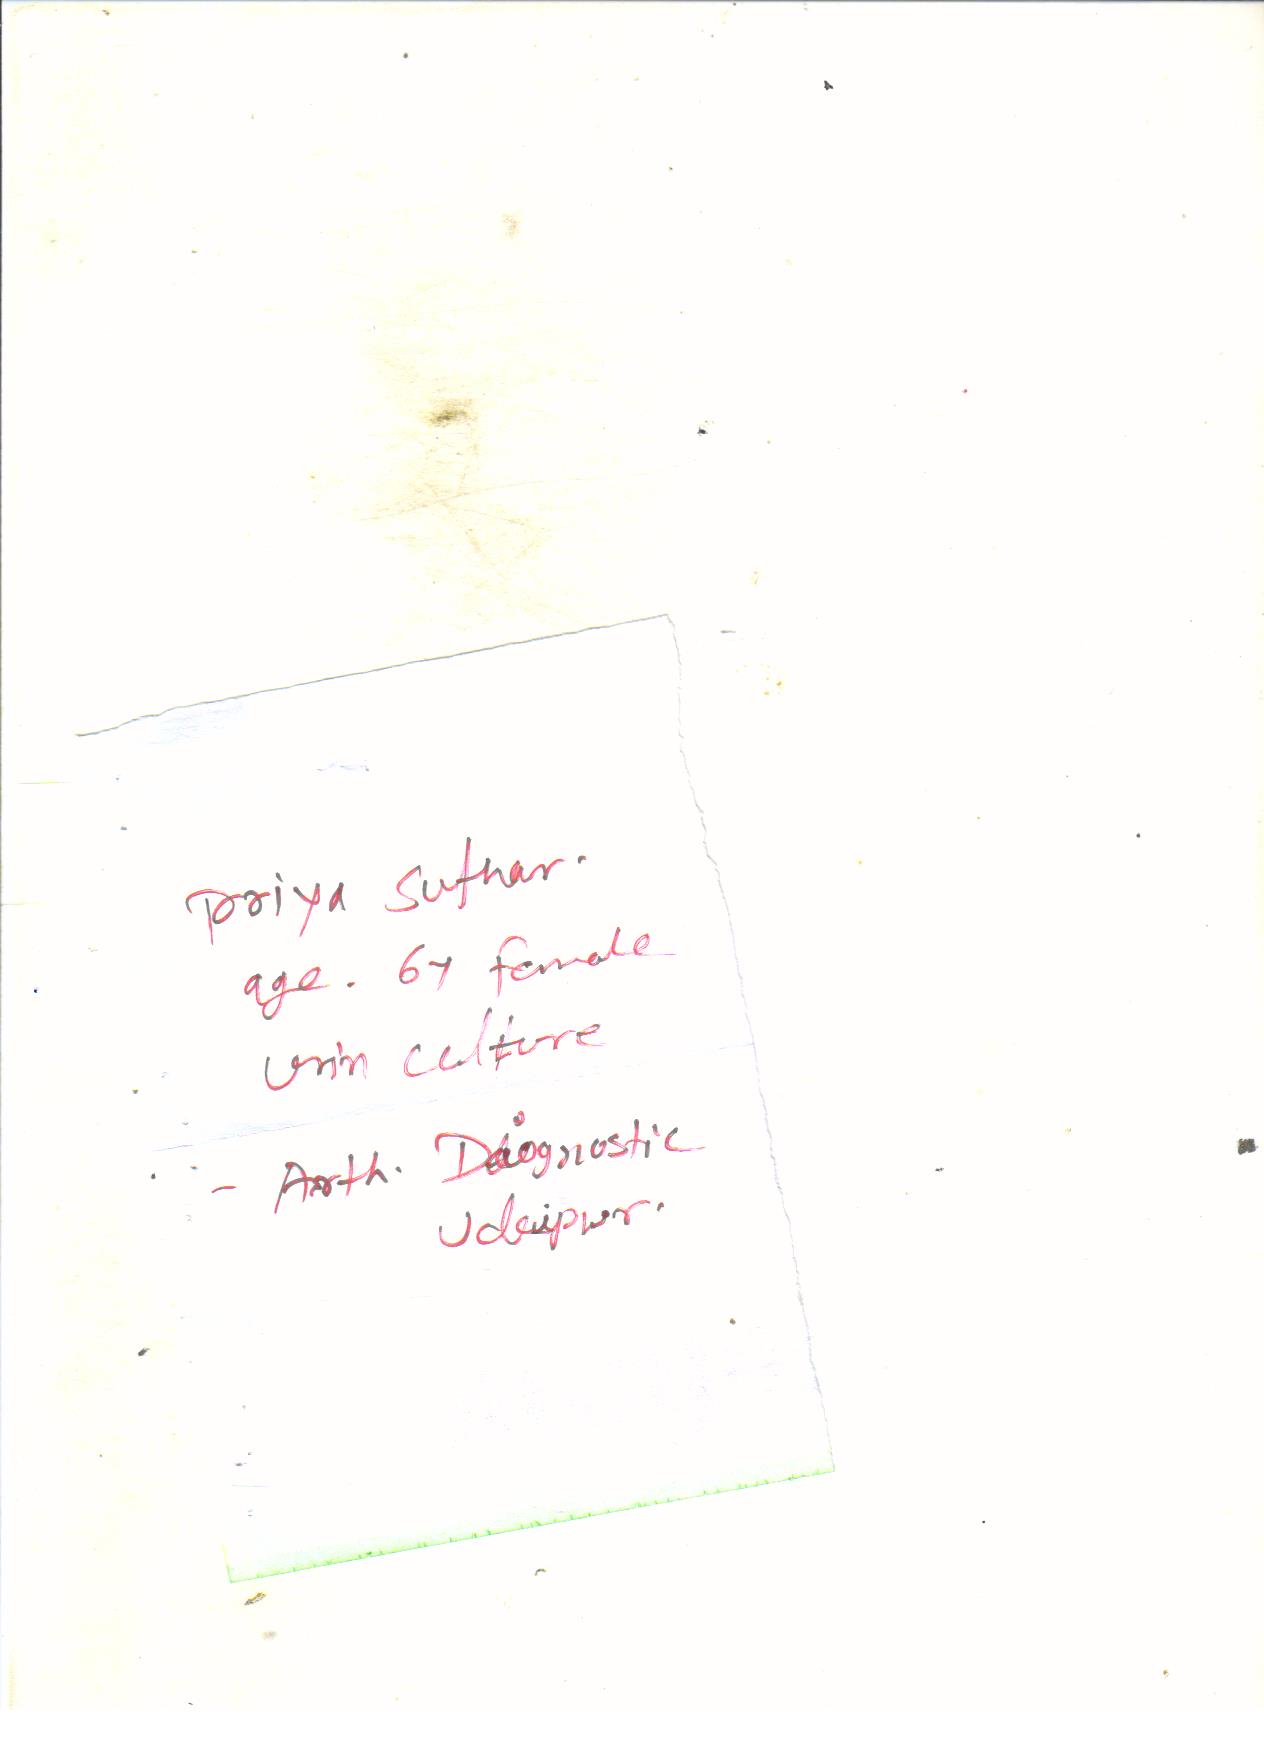 Priya Suthar.
age. 6y female
Urin culture
- Arth. Daignostic
Udaipur.